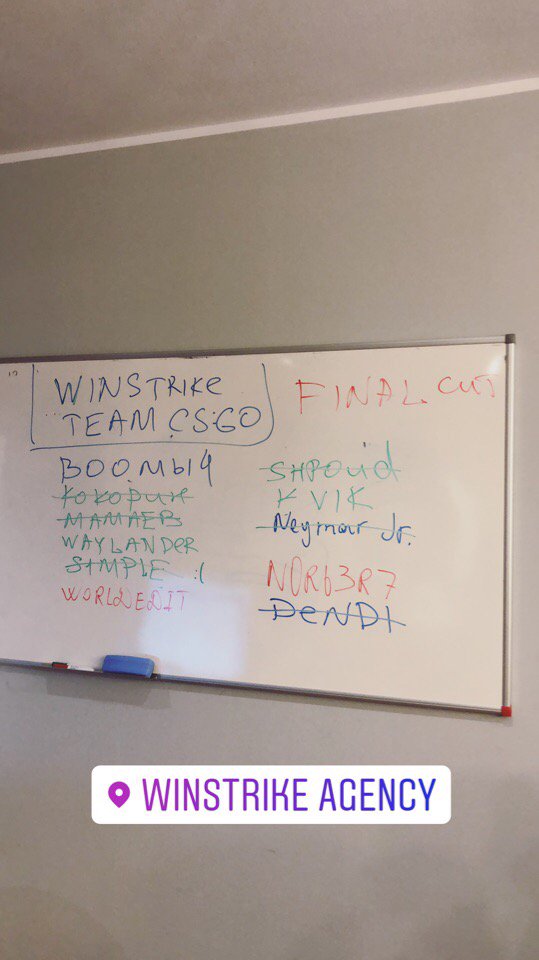 WINSTRIKE
TEAM CS:GO
FINAL CUT
BOOMBI4
КОКОРИН
МАМАЕВ
WAYLANDER
SIMPLE :(
WORLDEDIT
SHROUD
KVIK
Neymar Jr.
NOR63R7
DENDI
WINSTRIKE AGENCY